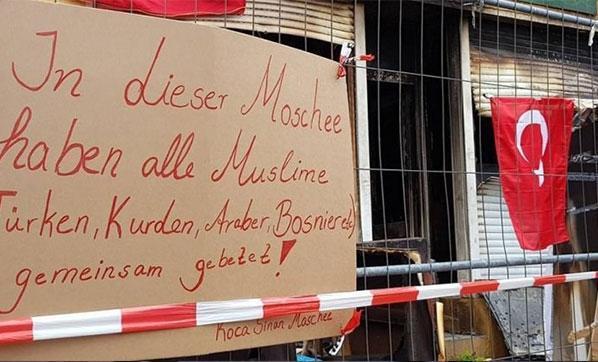 In dieser Moschee
haben alle Muslime
Türken, Kurden, Araber, Bosnier etc)
gemeinsam gebetet!
Koca Sinan Moschee